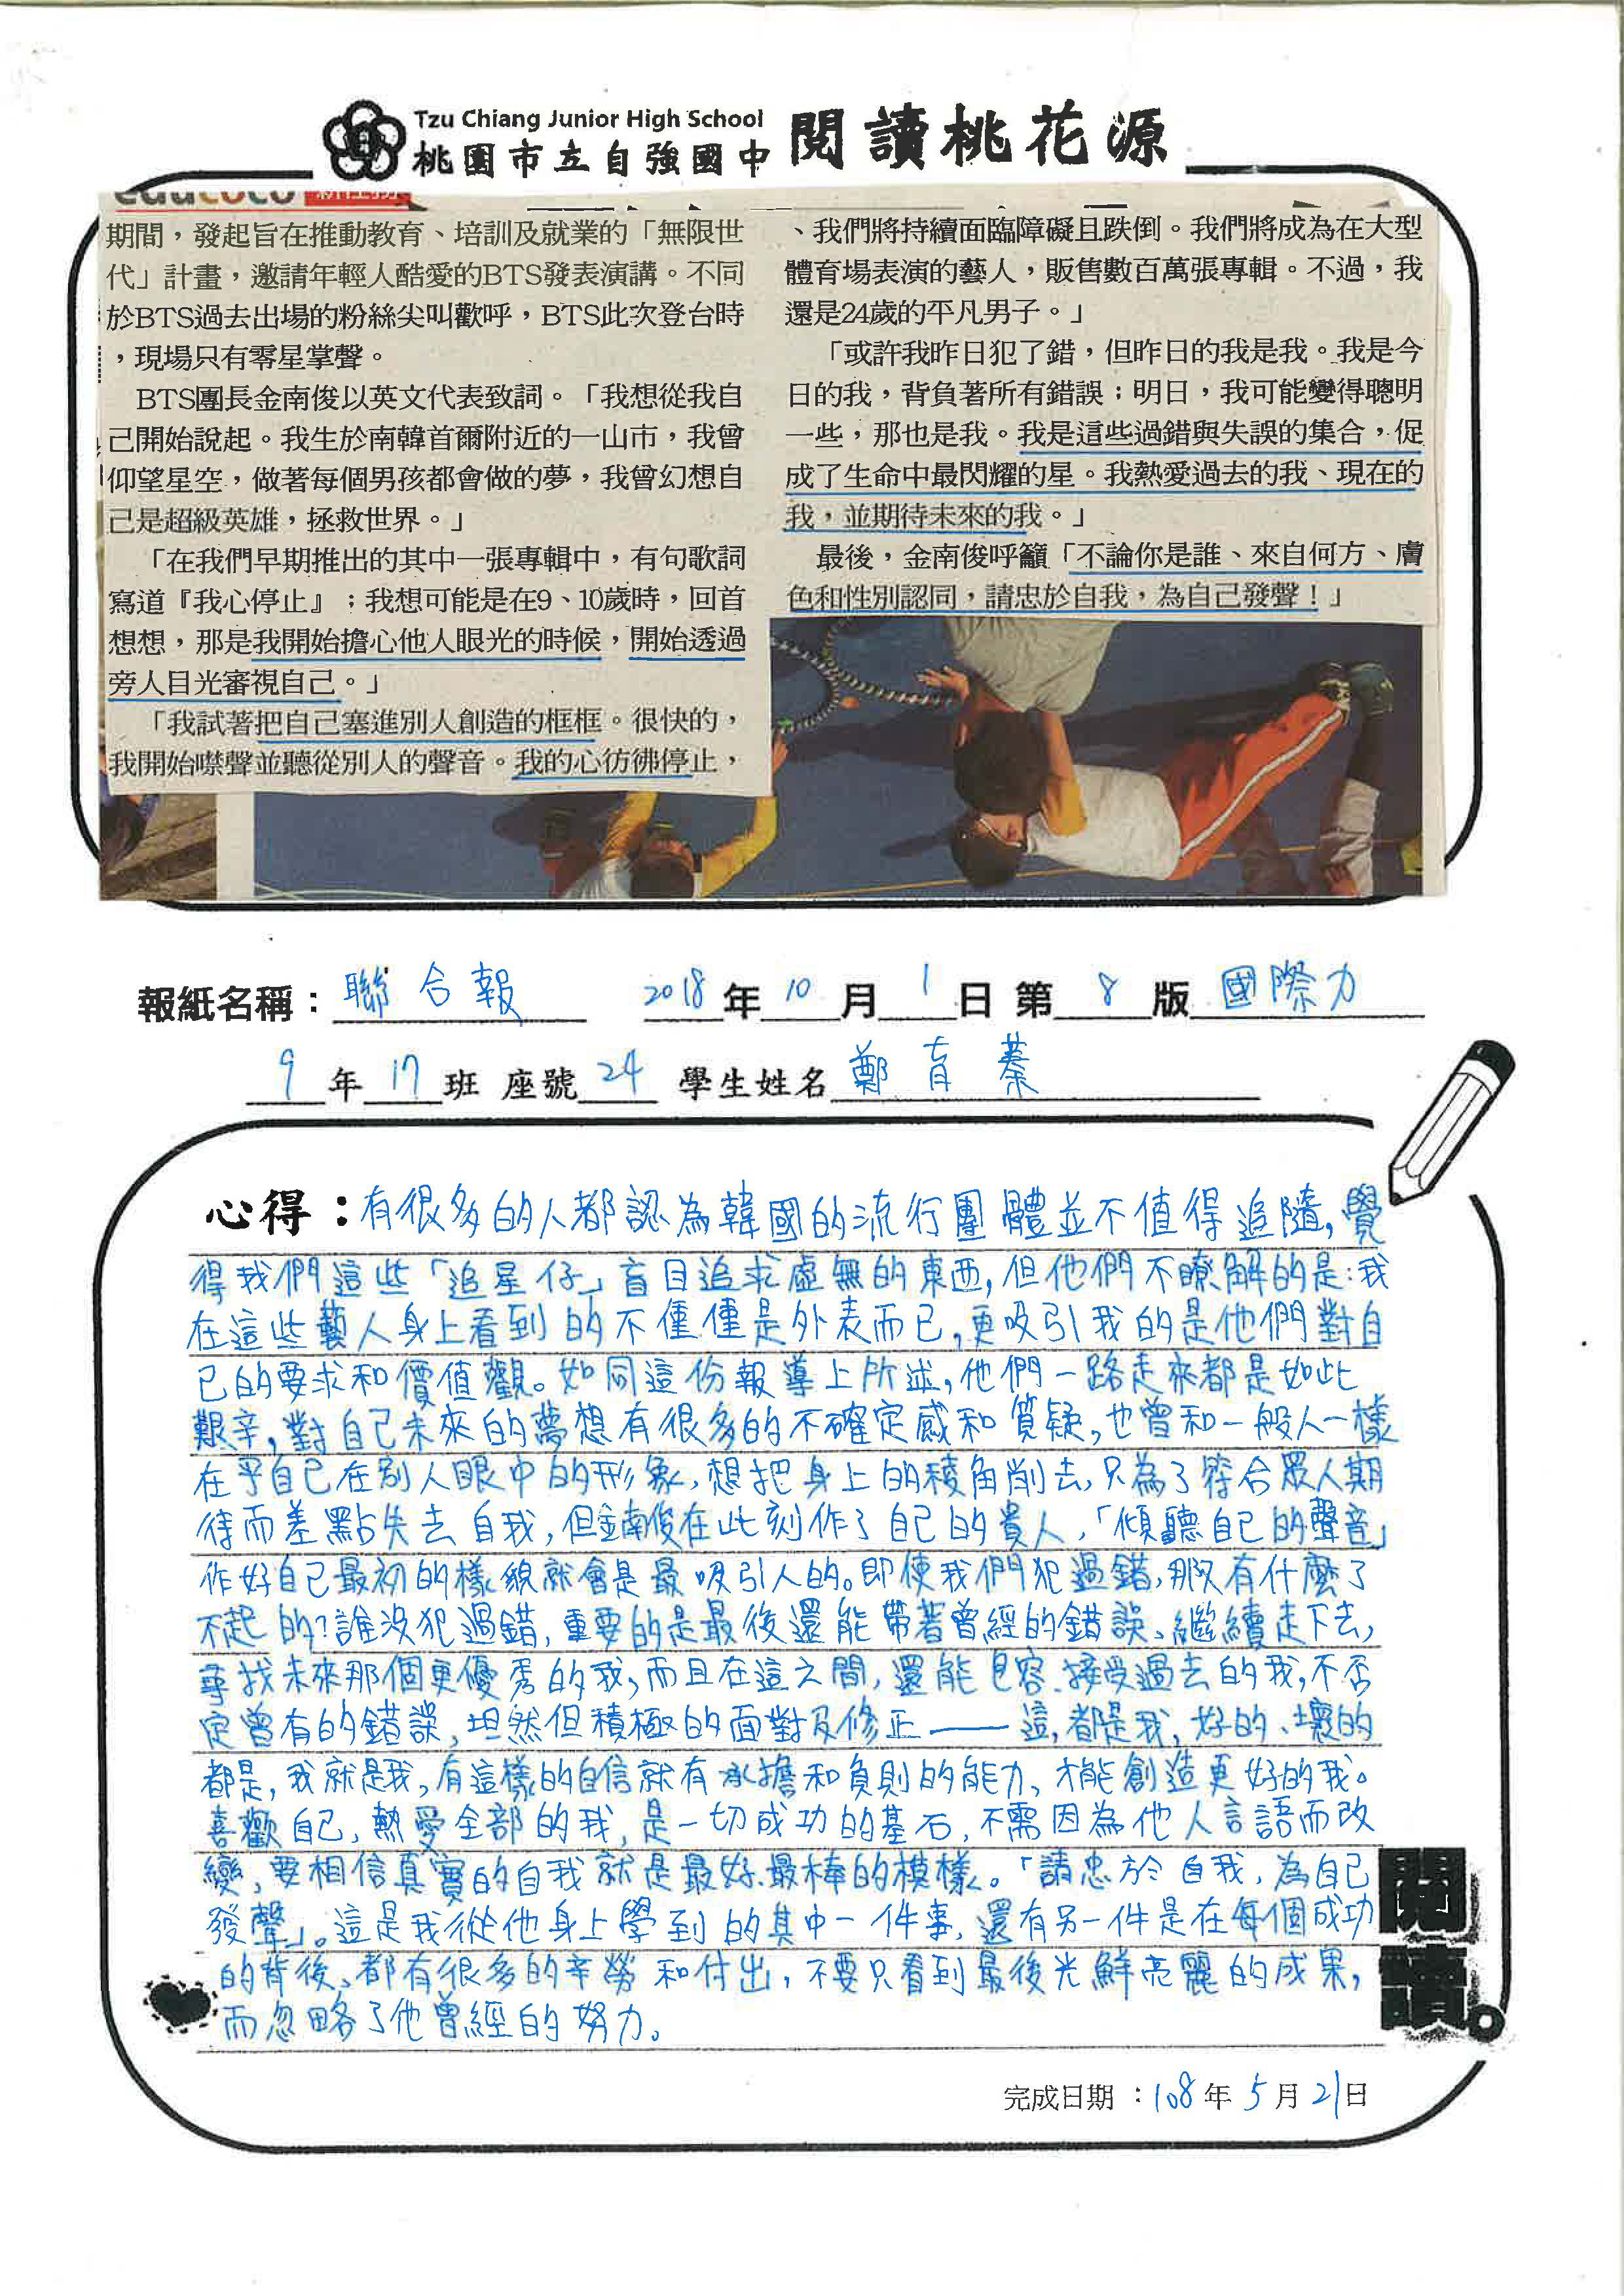 Tzu Chiang Junior High School
桃園市立自強國中
閱讀桃花源
educoco
期間，發起旨在推動教育、培訓及就業的「無限世
代」計畫，邀請年輕人酷愛的BTS發表演講。不同
於BTS過去出場的粉絲尖叫歡呼，BTS此次登台時
，現場只有零星掌聲。
BTS團長金南俊以英文代表致詞。「我想從我自
己開始說起。我生於南韓首爾附近的一山市，我曾
仰望星空，做著每個男孩都會做的夢，我曾幻想自
己是超級英雄，拯救世界。」
「在我們早期推出的其中一張專輯中，有句歌詞
寫道『我心停止』；我想可能是在9、10歲時，回首
想想，那是我開始擔心他人眼光的時候，開始透過
旁人目光審視自己。」
「我試著把自己塞進別人創造的框框。很快的，
我開始噤聲並聽從別人的聲音。我的心彷彿停止，
、我們將持續面臨障礙且跌倒。我們將成為在大型
體育場表演的藝人，販售數百萬張專輯。不過，我
還是24歲的平凡男子。」
「或許我昨日犯了錯，但昨日的我是我。我是今
日的我，背負著所有錯誤；明日，我可能變得聰明
一些，那也是我。我是這些過錯與失誤的集合，促
成了生命中最閃耀的星。我熱愛過去的我、現在的
我，並期待未來的我。」
最後，金南俊呼籲「不論你是誰、來自何方、膚
色和性別認同，請忠於自我，為自己發聲！」
報紙名稱：聯合報 2018年10月1日 第8版 國際力
9年17班 座號24 學生姓名 鄭育蓁
心得：有很多的人都認為韓國的流行團體並不值得追隨,覺
得我們這些「追星仔」盲目追求虛無的東西,但他們不瞭解的是:我
在這些藝人身上看到的不僅僅是外表而已,更吸引我的是他們對自
己的要求和價值觀。如同這份報導上所述,他們一路走來都是如此
艱辛,對自己未來的夢想有很多的不確定感和質疑,也曾和一般人一樣
在乎自己在別人眼中的形象,想把身上的稜角削去,只為了符合眾人期
待而差點失去自我,但金南俊在此刻作了自己的貴人,「傾聽自己的聲音」
作好自己最初的樣貌就會是最吸引人的。即使我們犯過錯,那又有什麼了
不起的?誰沒犯過錯,重要的是最後還能帶著曾經的錯誤、繼續走下去,
尋找未來那個更優秀的我,而且在這之間,還能包容、接受過去的我,不否
定曾有的錯誤,坦然但積極的面對及修正——這,都是我,好的、壞的
都是,我就是我,有這樣的自信就有承擔和負則的能力、才能創造更好的我。
喜歡自己,熱愛全部的我,是一切成功的基石,不需因為他人言語而改
變,要相信真實的自我就是最好、最棒的模樣。「請忠於自我,為自己
發聲」。這是我從他身上學到的其中一件事,還有另一件是在每個成功
的背後、都有很多的辛勞和付出,不要只看到最後光鮮亮麗的成果,
而忽略了他曾經的努力。
閱讀。
完成日期：108年5月21日